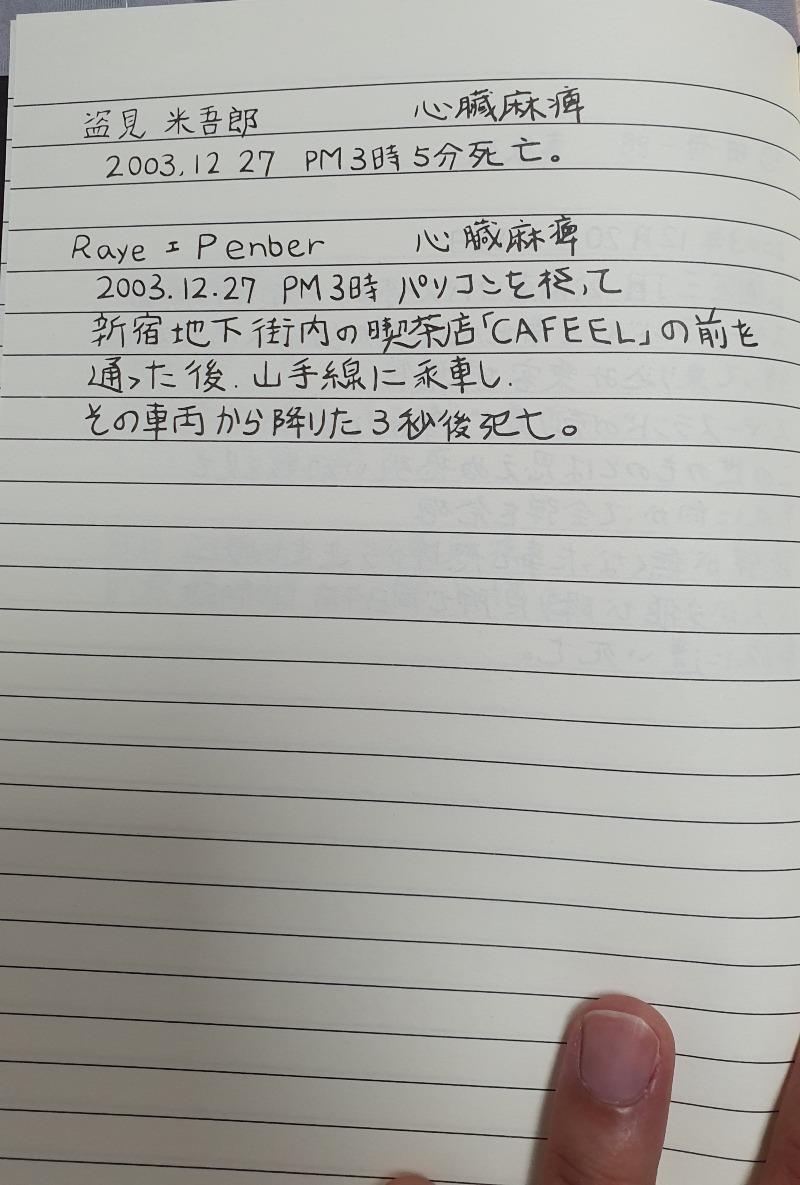 盗見 米吾郎 心臓麻痺
2003.12 27 PM3時5分死亡。
Raye I Penber 心臓麻痺
2003.12.27 PM3時 パソコンを持って
新宿地下街内の喫茶店「CAFEEL」の前を
通った後.山手線に乗車し.
その車両から降りた3秒後死亡。